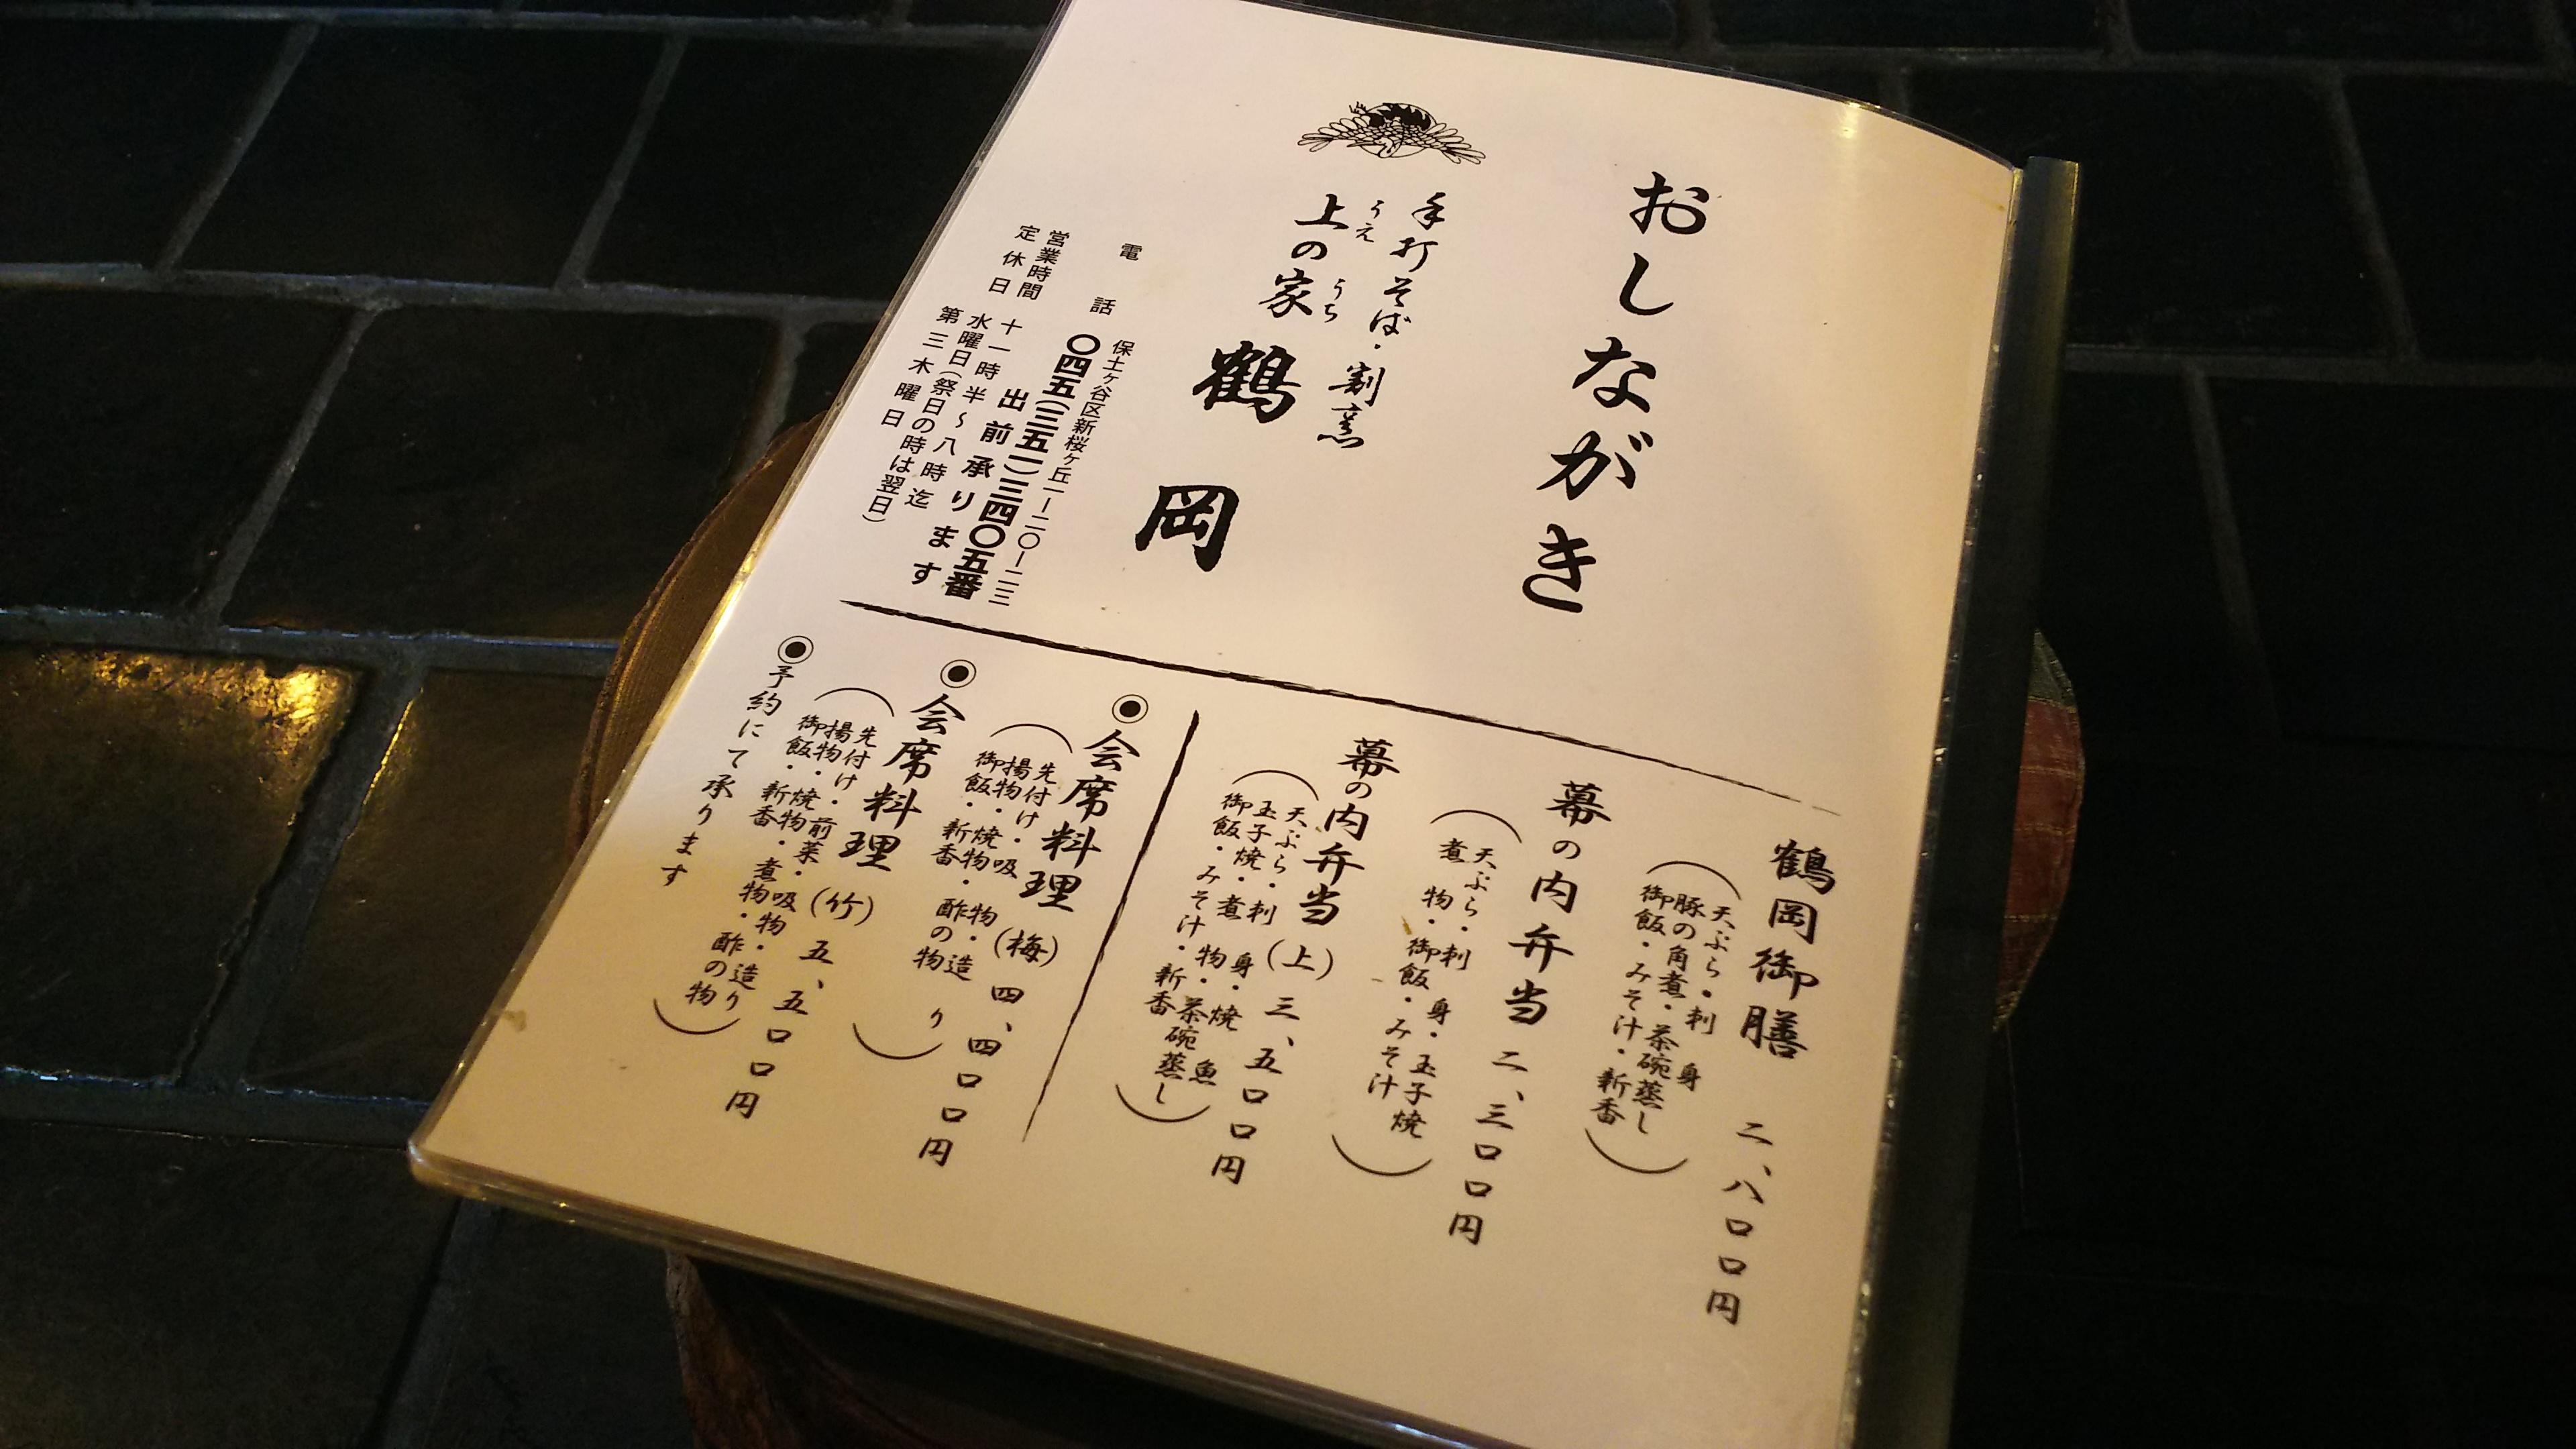 おしながき
手打そば・割烹
うえ うち
上の家 鶴岡
保土ヶ谷区新桜ヶ丘一ー二〇ー二三
電話 〇四五(三五一)三四〇五番
出前承ります
営業時間 十一時半～八時迄
定休日 水曜日(祭日の時は翌日)
第三木曜日
鶴岡御膳 二、八〇〇円
(天ぷら・刺身
豚の角煮・茶碗蒸し
御飯・みそ汁・新香)
幕の内弁当 二、三〇〇円
(天ぷら・刺身・玉子焼
煮物・御飯・みそ汁)
幕の内弁当(上) 三、五〇〇円
(天ぷら・刺身・焼魚
玉子焼・煮物・茶碗蒸し
御飯・みそ汁・新香)
◉会席料理(梅) 四、四〇〇円
(先付け・吸物・造り
揚物・焼物・酢の物
御飯・新香)
◉会席料理(竹) 五、五〇〇円
(先付け・前菜・吸物・造り
揚物・焼物・煮物・酢の物
御飯・新香)
◉予約にて承ります